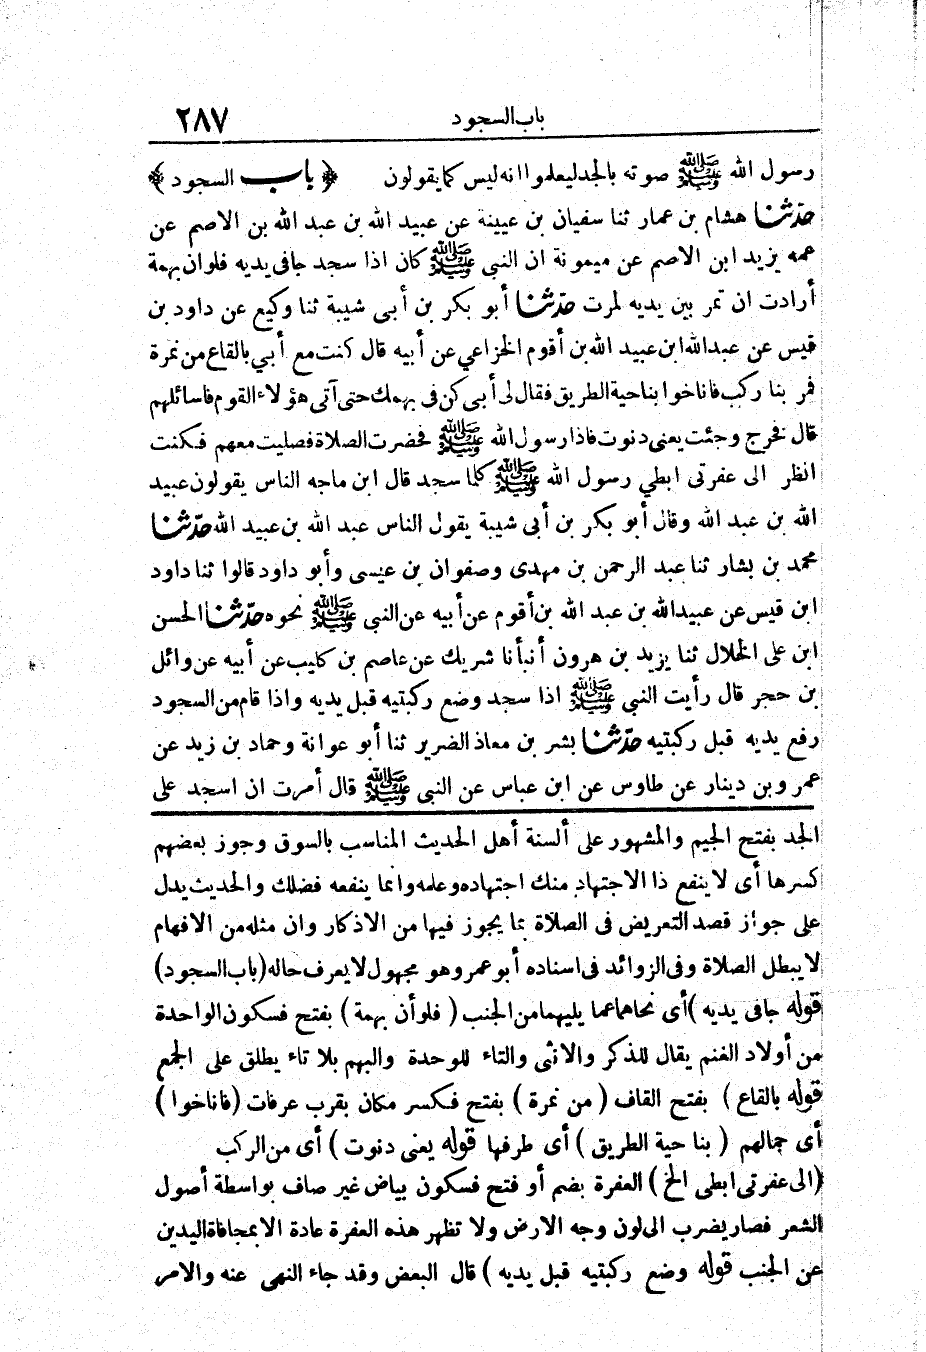 باب السجود ٢٨٧
رسول الله ﷺ صوته بالجد ليعلموا انه ليس كما يقولون ﴿ باب السجود ﴾
حدّثنا هشام بن عمار ثنا سفيان بن عيينة عن عبيد الله بن عبد الله بن الاصم عن
عمه يزيد ابن الاصم عن ميمونة ان النبي ﷺ كان اذا سجد جافى يديه فلوان بهمة
أرادت ان تمر بين يديه لمرت حدّثنا أبو بكر بن أبى شيبة ثنا وكيع عن داود بن
قيس عن عبدالله ابن عبيد الله بن أقوم الخزاعي عن أبيه قال كنت مع أبي بالقاع من نمرة
فمر بنا ركب فاناخوا بناحية الطريق فقال لى أبى كن فى بهمك حتى آتى هؤلاء القوم فاسائلهم
قال فخرج وجئت يعنى دنوت فاذا رسول الله ﷺ فحضرت الصلاة فصليت معهم فكنت
انظر الى عفرتى ابطي رسول الله ﷺ كلما سجد قال ابن ماجه الناس يقولون عبيد
الله بن عبد الله وقال أبو بكر بن أبى شيبة يقول الناس عبد الله بن عبيد الله حدّثنا
محمد بن بشار ثنا عبد الرحمن بن مهدى وصفوان بن عيسى وأبو داود قالوا ثنا داود
ابن قيس عن عبيدالله بن عبد الله بن أقوم عن أبيه عن النبي ﷺ نحوه حدّثنا الحسن
ابن على الخلال ثنا يزيد بن هرون أنبأنا شريك عن عاصم بن كليب عن أبيه عن وائل
بن حجر قال رأيت النبي ﷺ اذا سجد وضع ركبتيه قبل يديه واذا قام من السجود
رفع يديه قبل ركبتيه حدّثنا بشر بن معاذ الضرير ثنا أبو عوانة وحماد بن زيد عن
عمرو بن دينار عن طاوس عن ابن عباس عن النبي ﷺ قال أمرت ان اسجد على
الجد بفتح الجيم والمشهور على ألسنة أهل الحديث المناسب بالسوق وجوز بعضهم
كسرها أى لا ينفع ذا الاجتهاد منك اجتهاده وعلمه وانما ينفعه فضلك والحديث يدل
على جواز قصد التعريض فى الصلاة بما يجوز فيها من الاذكار وان مثله من الافهام
لا يبطل الصلاة وفى الزوائد فى اسناده أبو عمرو هو مجهول لا يعرف حاله (باب السجود)
قوله جافى يديه ) أى نحاهما عما يليهما من الجنب ( فلوأن بهمة ) بفتح فسكون الواحدة
من أولاد الغنم يقال للذكر والانثى والتاء للوحدة والبهم بلا تاء يطلق على الجمع
قوله بالقاع ) بفتح القاف ( من نمرة ) بفتح فكسر مكان بقرب عرفات (فاناخوا )
أى جمالهم ( بنا حية الطريق ) أى طرفها قوله يعنى دنوت ) أى من الركب
(الى عفرتى ابطى الخ ) العفرة بضم أو فتح فسكون بياض غير صاف بواسطة أصول
الشعر فصار يضرب الى لون وجه الارض ولا تظهر هذه العفرة عادة الا بمجافاة اليدين
عن الجنب قوله وضع ركبتيه قبل يديه ) قال البعض وقد جاء النهى عنه والامر